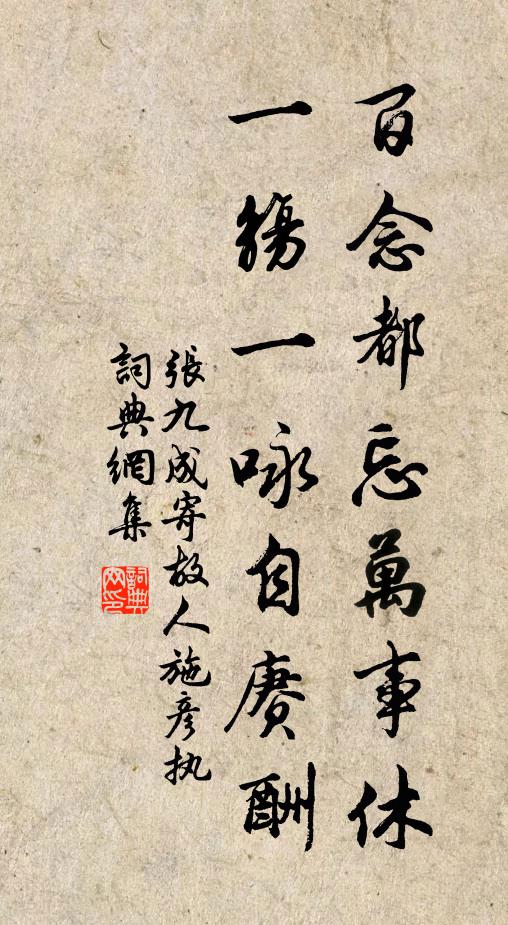 百念都忘萬事休
一觴一咏自賡酬
張九成寄故人施彦执
詞典網集
詞典网印